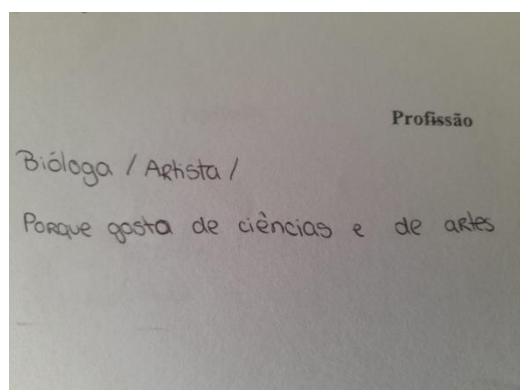 Profissão
Bióloga / Artista /
Porque gosta de ciências e de artes